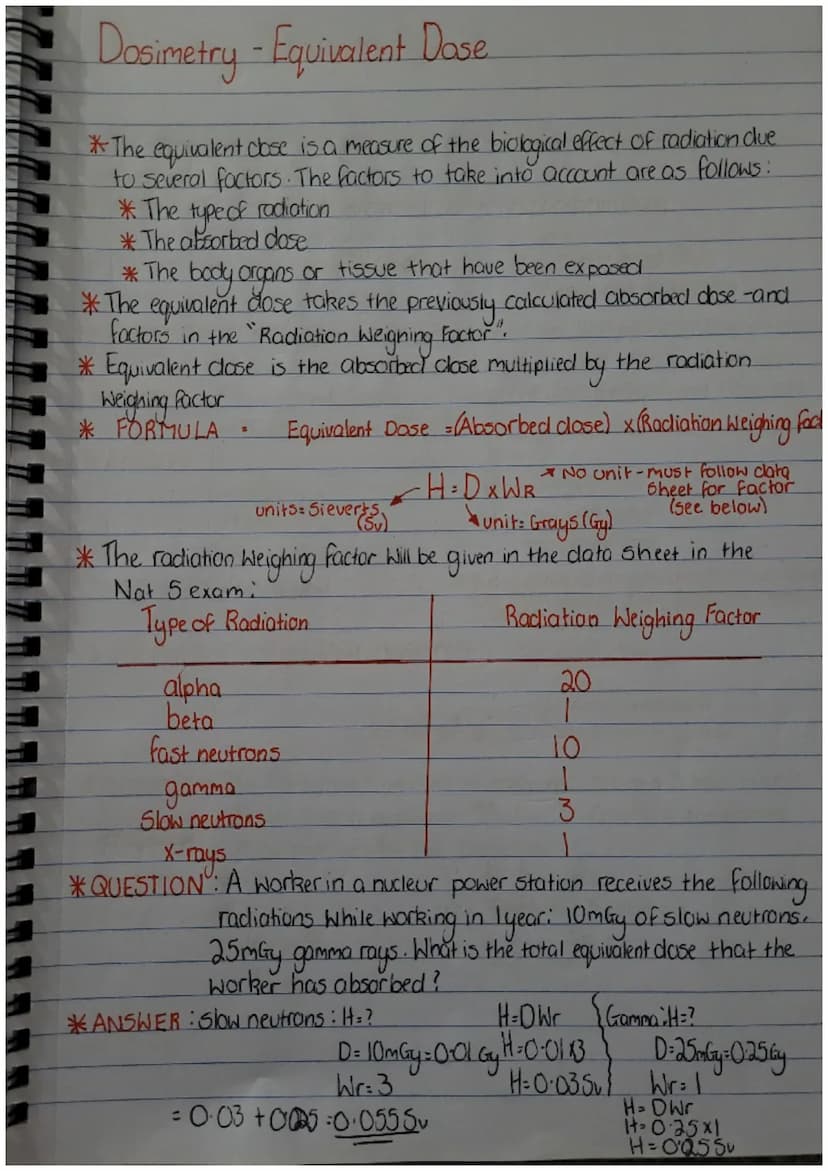 Dosimetry - Equivalent Dose
* The equivalent dose is a measure of the biological effect of radiation due
to several factors. The factors to take into account are as follows:
* The type of radiation
* The absorbed dose
* The body organs or tissue that have been exposed
* The equivalent dose takes the previously calculated absorbed dose -and
factors in the "Radiation Weighing Factor".
* Equivalent dose is the absorbed dose multiplied by the radiation
Weighing factor
* FORMULA = Equivalent Dose = (Absorbed dose) x (Radiation Weighing fact
H = D x WR
No unit - must follow data
sheet for factor
(see below)
units = Sieverts
(Sv)
unit: Grays (Gy)
* The radiation Weighing factor will be given in the data sheet in the
Nat 5 exam:
Type of Radiation Radiation Weighing Factor
alpha 20
beta 1
fast neutrons 10
gamma 1
Slow neutrons 3
x-rays 1
* QUESTION: A worker in a nuclear power station receives the following
radiations while working in 1 year: 10mGy of slow neutrons.
25mGy gamma rays. What is the total equivalent dose that the
worker has absorbed?
* ANSWER: Slow neutrons: H=? H=DWr Gamma: H=?
D= 10mGy=0.01Gy H=0.01x3 D=25mGy=0.25Gy
Wr=3 H=0.03Sv Wr=1
H= DWr
= 0.03 + 0.025 = 0.055Sv H= 0.25x1
H= 0.025Sv